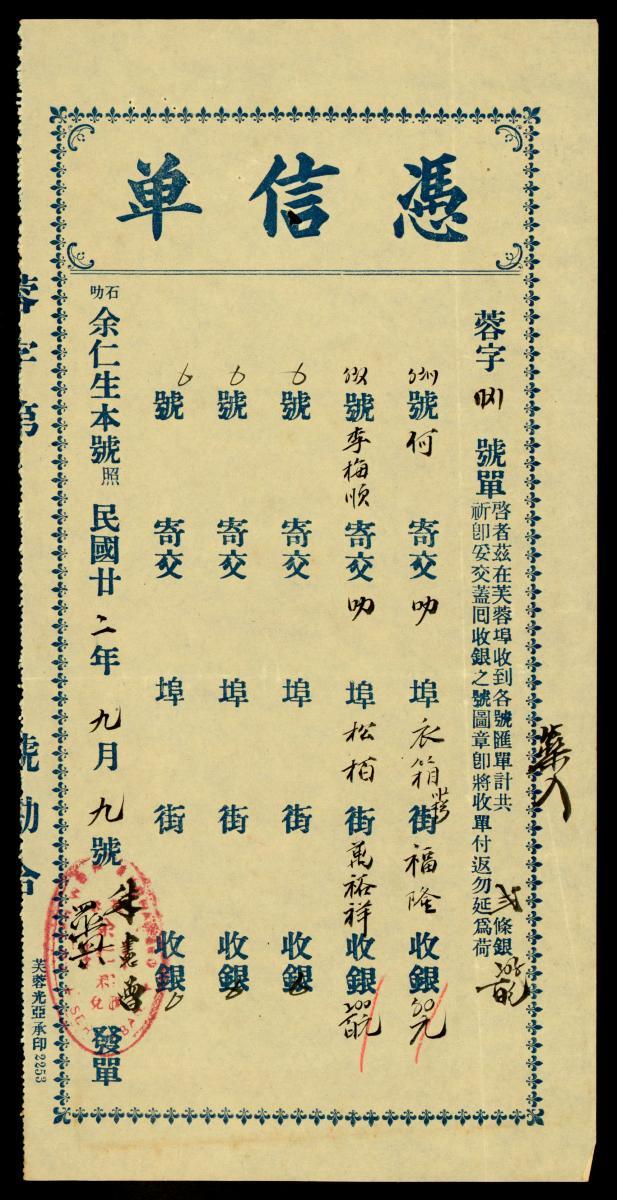 憑信单
蓉字 號單
啓者茲在芙蓉埠收到各號匯單計共 弍 條銀
祈即妥交蓋囘收銀之號圖章即將收單付返勿延爲荷
號何 寄交叻 埠衣箱街福隆 收銀50元
號李梅順 寄交叻 埠松柏街萬裕祥 收銀200
號 寄交 埠 街 收銀
號 寄交 埠 街 收銀
號 寄交 埠 街 收銀
石叻 余仁生本號照 民國廿二年九月九號 發單
蓉字第 號勘合
芙蓉光亞承印2253